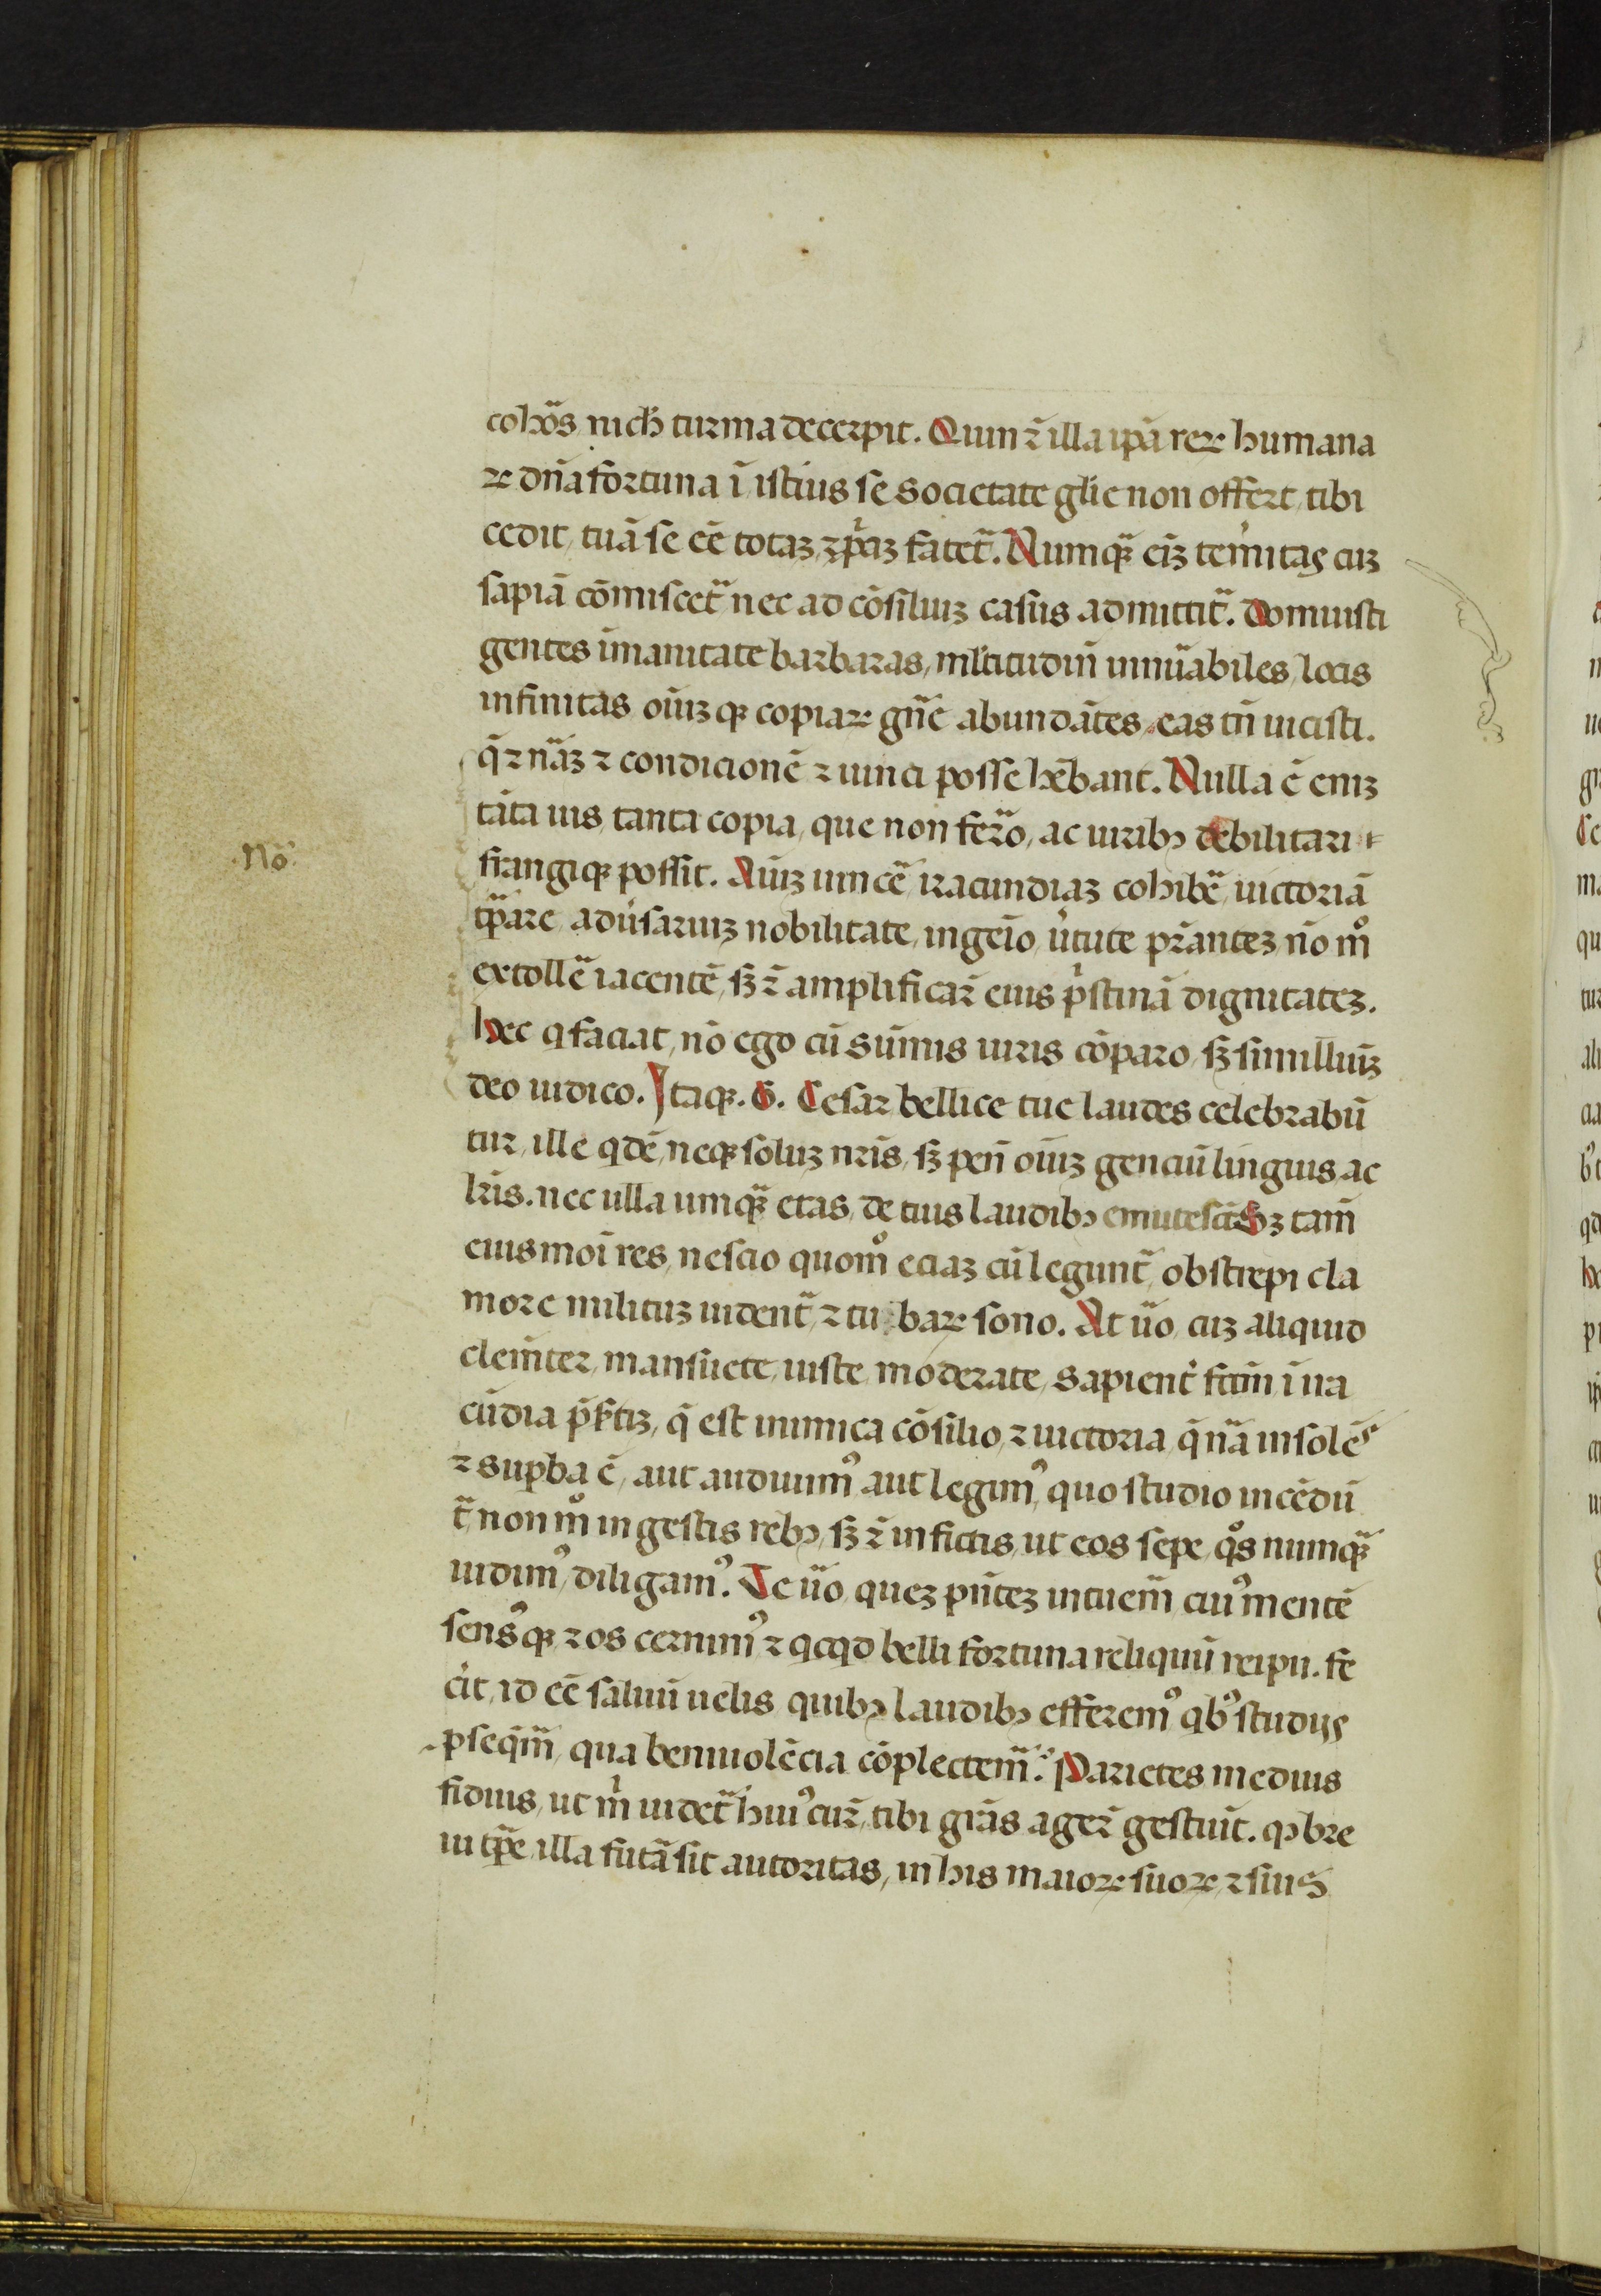 cohꝛ̃s nich̃ turma decerpit. Quin ⁊̃ illa ip̃a reꝝ humana
ꝝ dñã fortuna ĩ istius se societate gl̃ie non offert, tibi
cedit, tuã se eẽ totaꝫ, ⁊ pͥaꝫ fatet̃. Numqꝫ̃ eĩꝫ tem̃itas cuꝫ
sapiã cõmiscet̃ nec ad cõsiliuꝫ casus admittit̃. Domuisti
gentes ĩmanitate barbaras, ml̃titudiñ innũabiles, locis
infinitas, oĩuꝫ qꝫ copiaꝝ gñe abundãtes, eas tñ uicisti.
q̃ ⁊ nãꝫ ⁊ condicionẽ ⁊ uinci posse hẽbant. Nulla ẽ eniꝫ
tãta uis, tanta copia, que non ferro, ac uiribꝫ debilitari
frangiqꝫ possit. Aĩuꝫ uincẽ iracundiaꝫ cohibẽ, uictoriã
tp̃are, adũsariuꝫ nobilitate, ingeĩo, ũtute pr̃anteꝫ nõ mͦ
extollẽ iacentẽ, sꝫ ⁊̃ amplificar̃ eius pͥstinã dignitateꝫ.
Hec q faciat, nõ ego cũ sũmis uiris cõparo, sꝫ simillimũꝫ
deo iudico. Itaqꝫ. G. Cesar bellice tue laudes celebrabũ
tur, ille qdẽ, neqꝫ soluꝫ nr̃is, sꝫ peñ oĩuꝫ genciũ linguis, ac
lr̃is. nec ulla umqꝫ̃ etas, de tuis laudibꝫ emutescet Sꝫ tam̃
eiusmoi res, nescio quomͦ eciaꝫ cũ legunt̃ obstrepi cla
more militũꝫ uident̃, ⁊ tubaꝝ sono. At ũo, cuꝫ aliquid
clem̃ter, mansuete, iuste, moderate, sapient̃ fctm̃ ĩ ira
cũdia p̃ꝫtiꝫ, q̃ est inimica cõsilio, ⁊ uictoria, q̃ nã insolẽs
⁊ supba ẽ, aut audiuimꝰ aut legimꝰ, quo studio incẽdũ
t̃ non mͦ in gestis rebꝫ, sꝫ ⁊̃ in fictis, ut eos sepe, qͦs numqꝫ̃
uidimꝰ, diligamꝰ. Te ũo, queꝫ pñteꝫ intuem̃ cuiꝰ mentẽ
sensꝰqꝫ ⁊ os cernimꝰ, ⁊ qcqd belli fortuna reliquũ reipu. fe
cit, id eẽ saluũ uelis quibꝫ laudibꝫ efferemꝰ qbꝰ studijs
pseqm̃, qua beniuolẽcia cõplectem̃. Parietes medius
fidius, ut mͥ uidet̃ huiꝰ cur̃, tibi grãs ager̃ gestiũt. qꝫ bre
ui tp̃e, illa futã sit autoritas, in his maioꝝ suoꝝ ⁊ suis
No͂